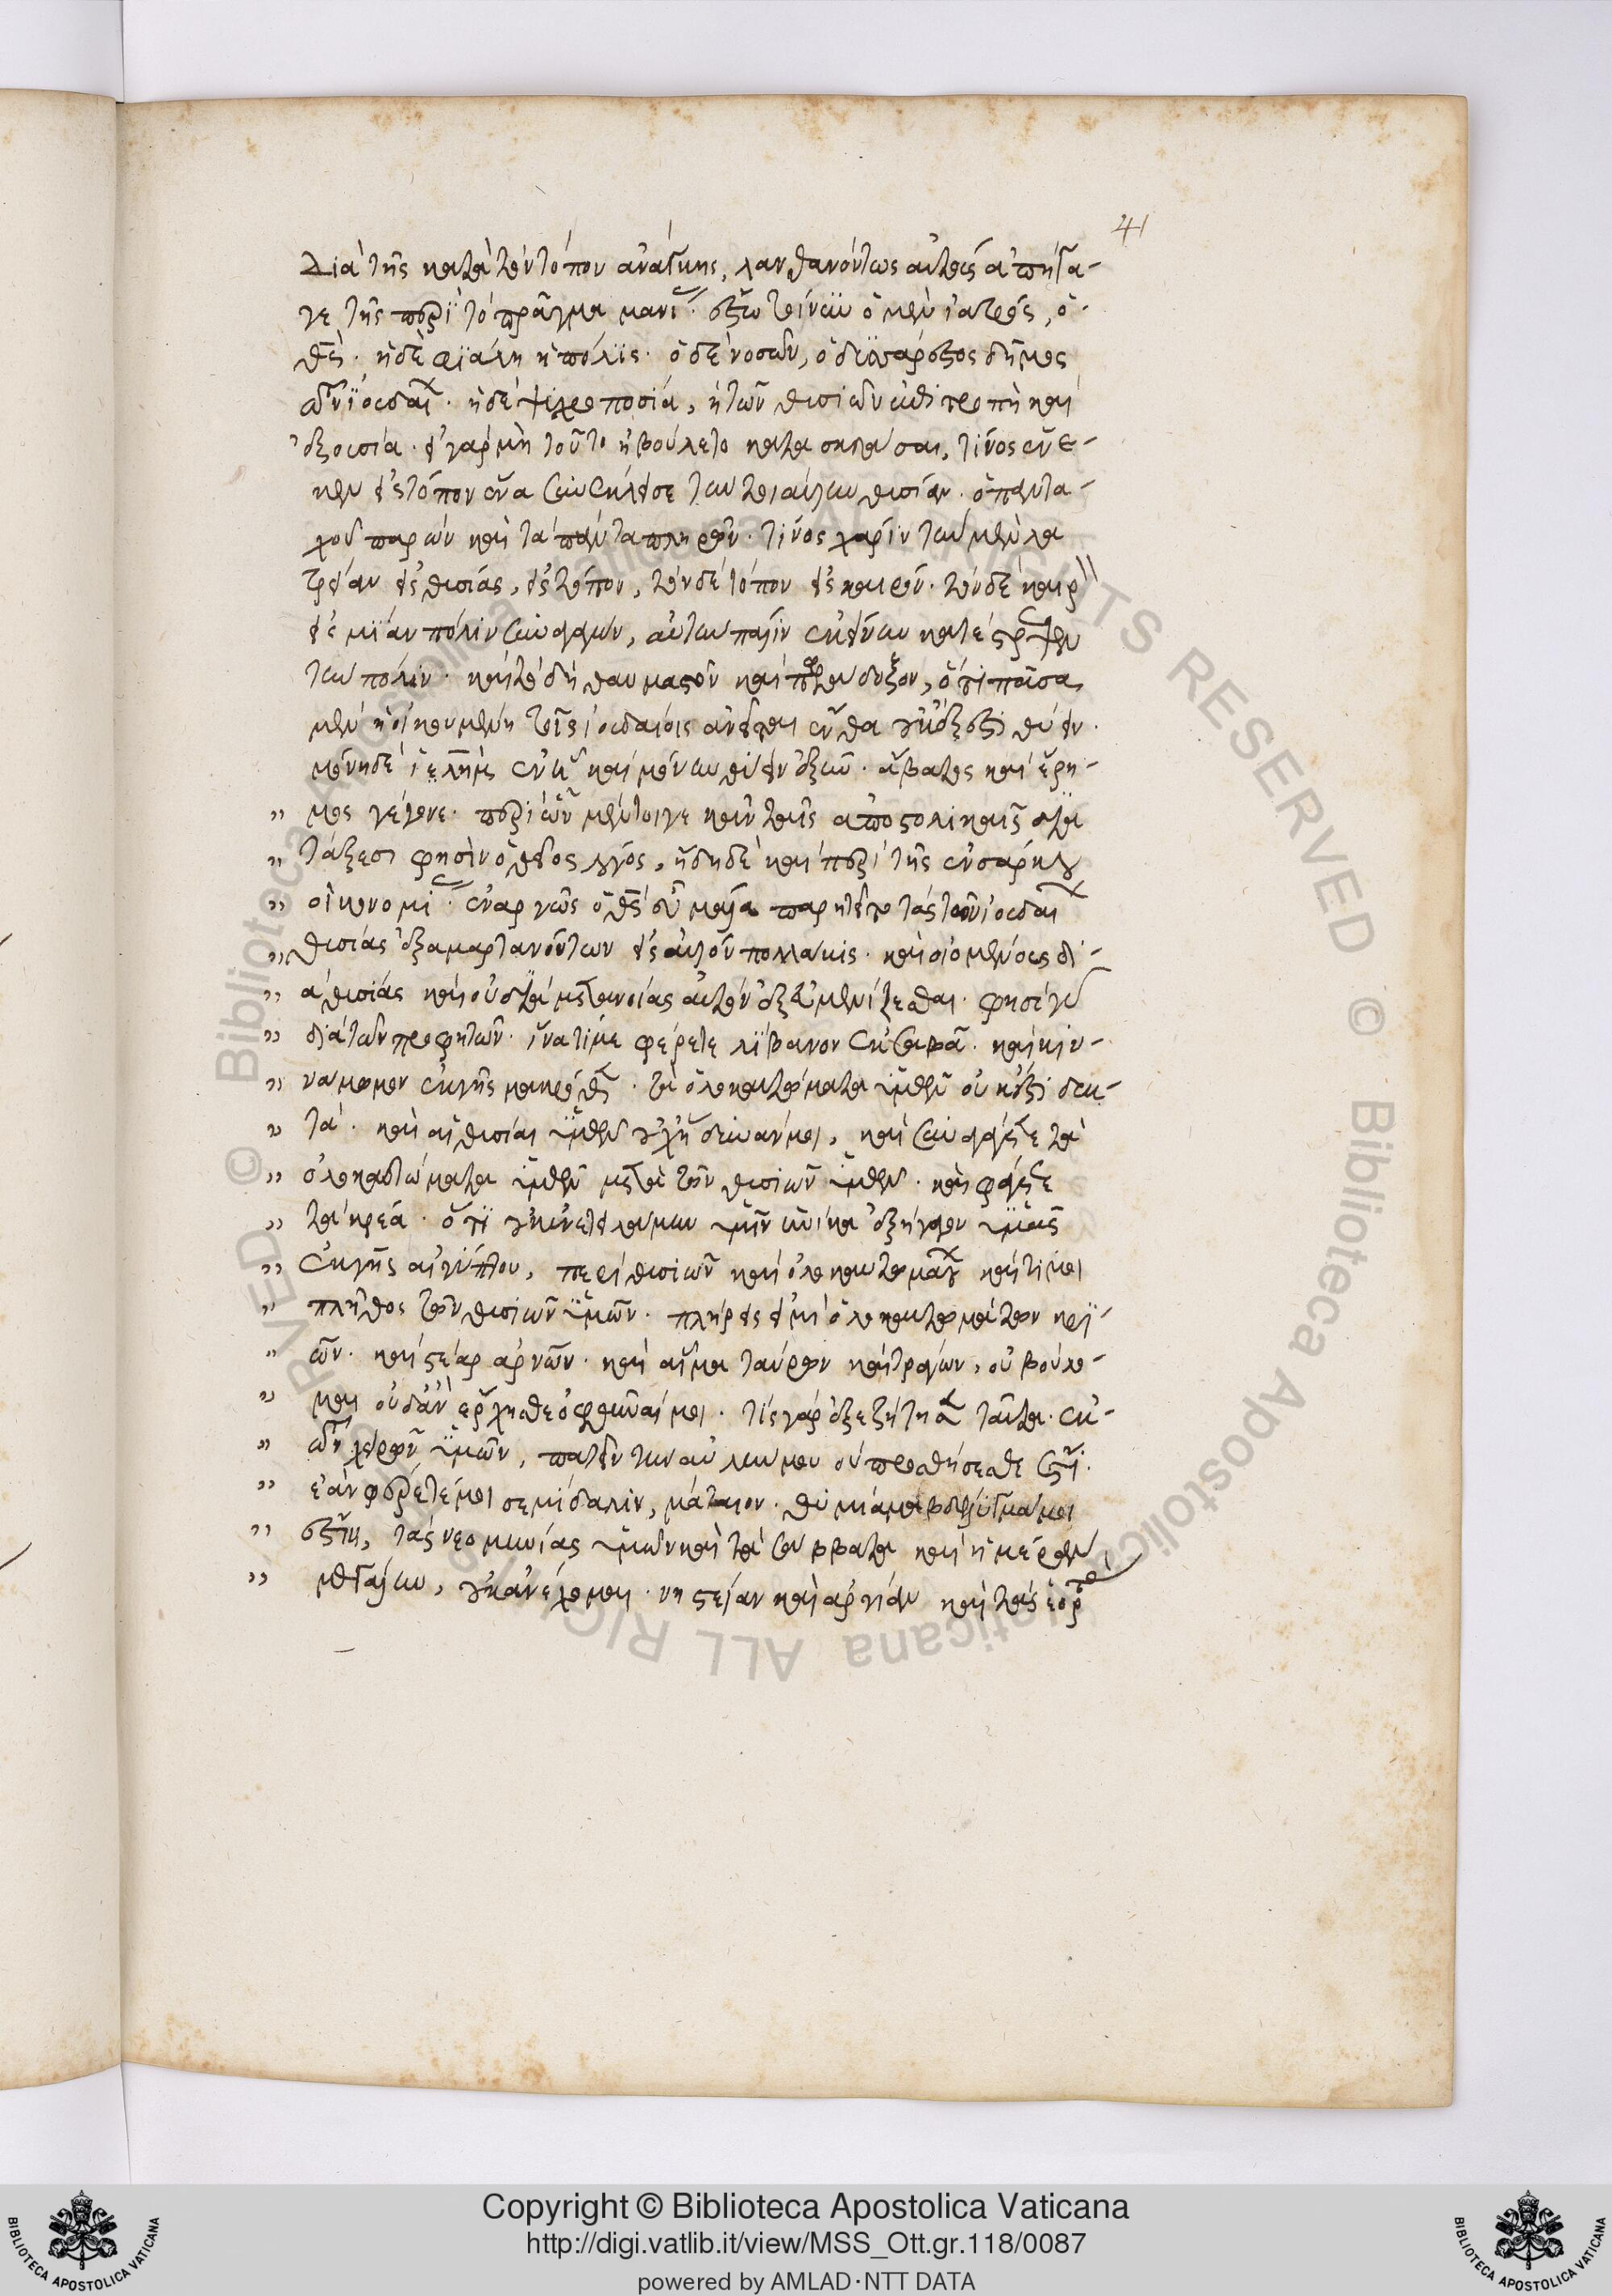 41
Διὰ τῆς κατὰ τὸν τόπον ἀνάγκης, λανθανόντως αὐτοὺς ἀπήγα-
γε τῆς περὶ τὸ πρᾶγμα μανί. ἔξω τείνειν ὁ μὲν ἰατρός, ὁ
θς. ἡ δὲ φιάλη ἡ πόλις. ὁ δὲ νοσῶν, ὁ
ἰουδαί. ἡ δὲ ψυχροποσία, ἡ τῶν θυσιῶν ἐπιτροπὴ καὶ
ἐξουσία. εἰ γὰρ μὴ τοῦτο ἠβούλετο κατασκευάσαι, τίνος ἕνε-
κεν εἰς τόπον ἕνα συνέκλεισε τὴν τοιαύτην θυσίαν. ὁ παντα-
χοῦ παρὼν καὶ τὰ πάντα πληρῶν. τίνος χάριν τὴν μὲν λα
τρείαν εἰς θυσίας, εἰς τόπον, τὸν δὲ τόπον εἰς καιρόν. τὸν δὲ καιρ
εἰς μίαν πόλιν συναγαγὼν, αὐτὴν πάλιν ἐκείνην κατέστρεψεν
τὴν πόλιν. καὶ τὸ δὴ θαυμαστὸν καὶ παράδοξον, ὅτι πᾶσα
μὲν ἡ οἰκουμένη τοῖς ἰουδαίοις ἀνεῖται ἔνθα οὐκ ἔξεστι θύειν.
μόνη δὲ ἱελὴμ ἔνθα καὶ μόνην θύειν ἐξῆν. ἄβατος καὶ ἔρη-
" μος γέγονε. περὶ ὧν μέντοιγε κἀν ταῖς ἀποστολικαῖς δια
" τάξεσι φησὶν ὁ θεῖος λγός, ἤδη δὲ καὶ περὶ τῆς ἐνσάρκου
" οἰκονομί. ἐναργῶς ὁ θς παρῃτεῖτο τὰς τῶν ἰουδαί
" θυσίας ἐξαμαρτανόντων εἰς αὐτὸν πολλάκις. καὶ οἰομένους δι-
" ὰ θυσίας καὶ οὐ διὰ μετανοίας αὐτὸν ἐξευμενίζεσθαι. φησὶ γὰρ
" διὰ τῶν προφητῶν. ἵνα τί με φέρετε λίβανον ἐκ σαβᾶ. καὶ κιν-
" νάμωμον ἐκ γῆς μακρόθ. τὰ ὁλοκαυτώματα ὑμῶν οὐκ ἔστι δεκ-
" τά. καὶ αἱ θυσίαι ὑμῶν οὐχ ἥδυνάν μοι, καὶ συναγάγετε τὰ
" ὁλοκαυτώματα ὑμῶν μετὰ τῶν θυσιῶν ὑμῶν. καὶ φάγετε
" τὰ κρέα. ὅτι οὐκ ἐνετειλάμην ὑμῖν ἡνίκα ἐξήγαγον ὑμᾶς
" ἐκ γῆς αἰγύπτου, περὶ θυσιῶν καὶ ὁλοκαυτωμάτ καὶ τί μοι
" πλῆθος τῶν θυσιῶν ὑμῶν. πλήρης εἰμὶ ὁλοκαυτωμάτων κρι-
" ῶν. καὶ στέαρ ἀρνῶν. καὶ αἷμα ταύρων καὶ τράγων, οὐ βούλο-
" μαι οὐδ' ἂν ἔρχησθε ὀφθῆναί μοι. τίς γὰρ ἐξεζήτησε ταῦτα ἐκ
" τῶν χειρῶν ὑμῶν, πατεῖν τὴν αὐλήν μου οὐ προσθήσεσθε ἔτι.
" ἐὰν φέρετέ μοι σεμίδαλιν, μάταιον. θυμίαμα βδέλυγμά μοι
" ἐστὶ, τὰς νεομηνίας ὑμῶν καὶ τὰ σάββατα καὶ ἡμέραν
" μεγάλην, οὐκ ἀνέχομαι. νηστείαν καὶ ἀργίαν καὶ τὰς ἑορτ
Copyright © Biblioteca Apostolica Vaticana
http://digi.vatlib.it/view/MSS_Ott.gr.118/0087
powered by AMLAD·NTT DATA